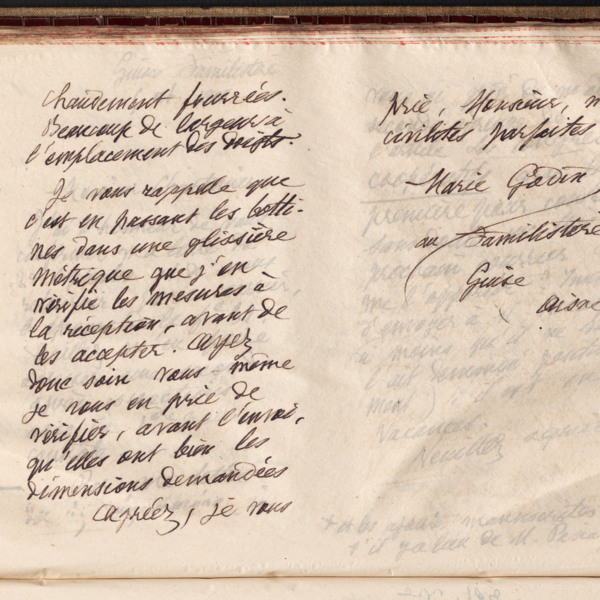 chaudement fourrées.
Beaucoup de largeur à
l'emplacement des doigts.
Je vous rappelle que
c'est en passant les botti-
nes dans une glissière
métrique que j'en
vérifie les mesures à
la réception, avant de
les accepter. Ayez
donc soin vous même
je vous en prie de
vérifier, avant l'envoi,
qu'elles ont bien les
dimensions demandées
Agréez, je vous
prie, Monsieur, m
civilités parfaites
Marie Godin
au Familistère
Guise
Aisne